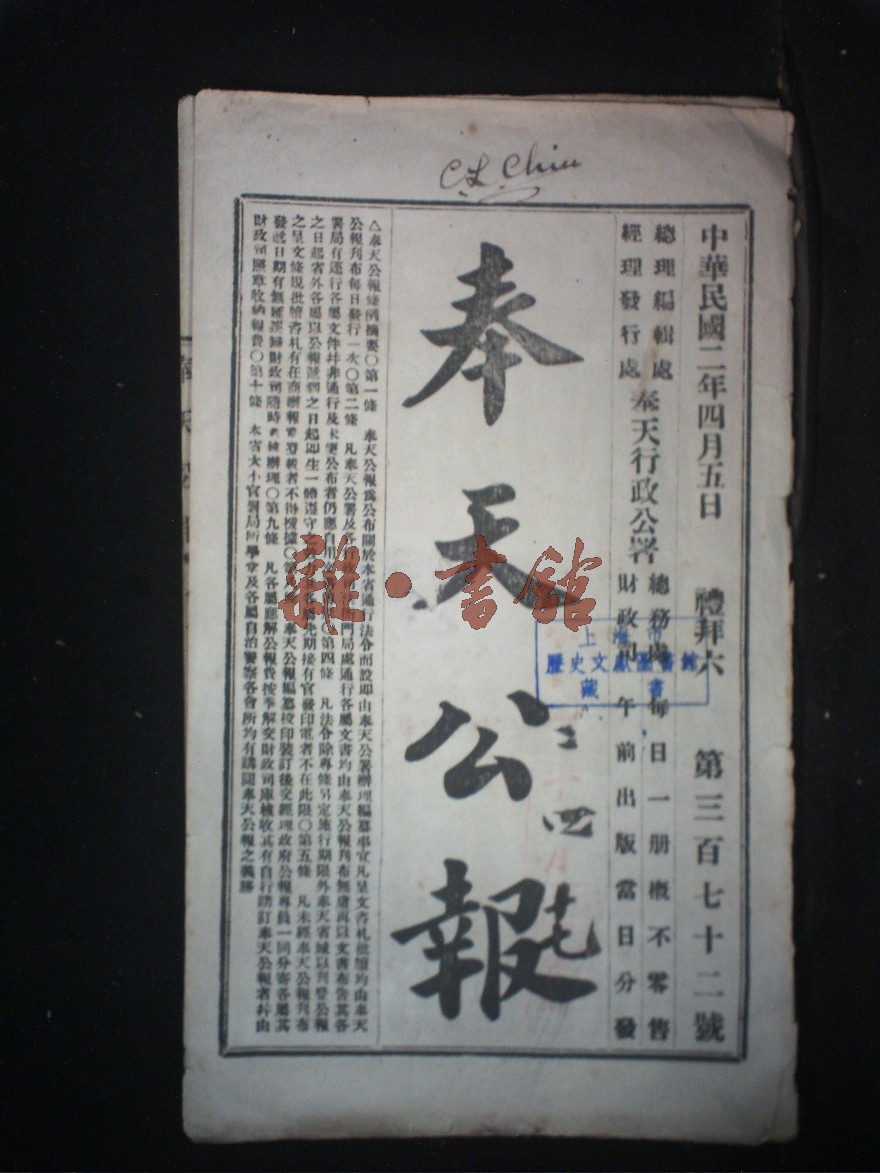 C L Chiu
中華民國二年四月五日 禮拜六 第三百七十二號
總理編輯處 總務處 每日一册概不零售
經理發行處 財政司 午前出版當日分發
奉天行政公署
奉天公報
二
四
七
△奉天公報條例摘要○第一條 奉天公報爲公布關於本省通行法令而設即由奉天公署辦理編纂事宜凡呈文咨札批牘均由奉天
公報刊布每日發行一次○第二條 凡奉天公署及各 門局處通行各屬文書均由奉天公報刊布無庸再以文書布告其各
署局有逕行各屬文件幷非通行及未便公布者仍應自用文 第四條 凡法令除專條另定施行期限外奉天省城以刊登公報
之日起省外各屬以公報遞到之日起即生一體遵守 先期接有官發印電者不在此限○第五條 凡未經奉天公報刊布
之呈文條規批牘咨札有在商辦報章登載者不得援據○ 奉天公報編纂校印裝訂後交經理政府公報專員一同分寄各屬其
發遞日期有無遲誤歸財政司隨時考核辦理○第九條 凡各屬應解公報費按季解交財政司庫核收其有自行請訂奉天公報者幷由
財政司照章收納報費○第十條 本省大小官署局所學堂及各屬自治警察各會所均有購閱奉天公報之義務
上海市
歷史文獻圖書館
藏書
雜·書館